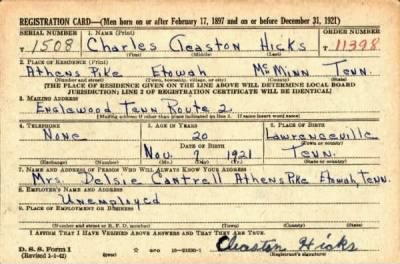 REGISTRATION CARD—(Men born on or after February 17, 1897 and on or before December 31, 1921)
SERIAL NUMBER 1. NAME (Print) ORDER NUMBER
T 1508 Charles Cleaston Hicks T 11398
(First) (Middle) (Last)
2. PLACE OF RESIDENCE (Print)
Athens Pike Etowah McMinn Tenn.
(Number and street) (Town, township, village, or city) (County) (State)
[THE PLACE OF RESIDENCE GIVEN ON THE LINE ABOVE WILL DETERMINE LOCAL BOARD
JURISDICTION; LINE 2 OF REGISTRATION CERTIFICATE WILL BE IDENTICAL]
3. MAILING ADDRESS
Englewood Tenn Route 2
[Mailing address if other than place indicated on line 2. If same insert word same]
4. TELEPHONE 5. AGE IN YEARS 6. PLACE OF BIRTH
None 20 Lawrenceville
DATE OF BIRTH (Town or county)
Nov. 7 1921 Tenn.
(Exchange) (Number) (Mo.) (Day) (Yr.) (State or country)
7. NAME AND ADDRESS OF PERSON WHO WILL ALWAYS KNOW YOUR ADDRESS
Mrs Delsie Cantrell Athens Pike Etowah, Tenn.
8. EMPLOYER'S NAME AND ADDRESS
Unemployed
9. PLACE OF EMPLOYMENT OR BUSINESS
(Number and street or R. F. D. number) (Town) (County) (State)
I AFFIRM THAT I HAVE VERIFIED ABOVE ANSWERS AND THAT THEY ARE TRUE.
D. S. S. Form 1
(Revised 1-1-42) (over) GPO Cleaston Hicks
(Registrant's signature)